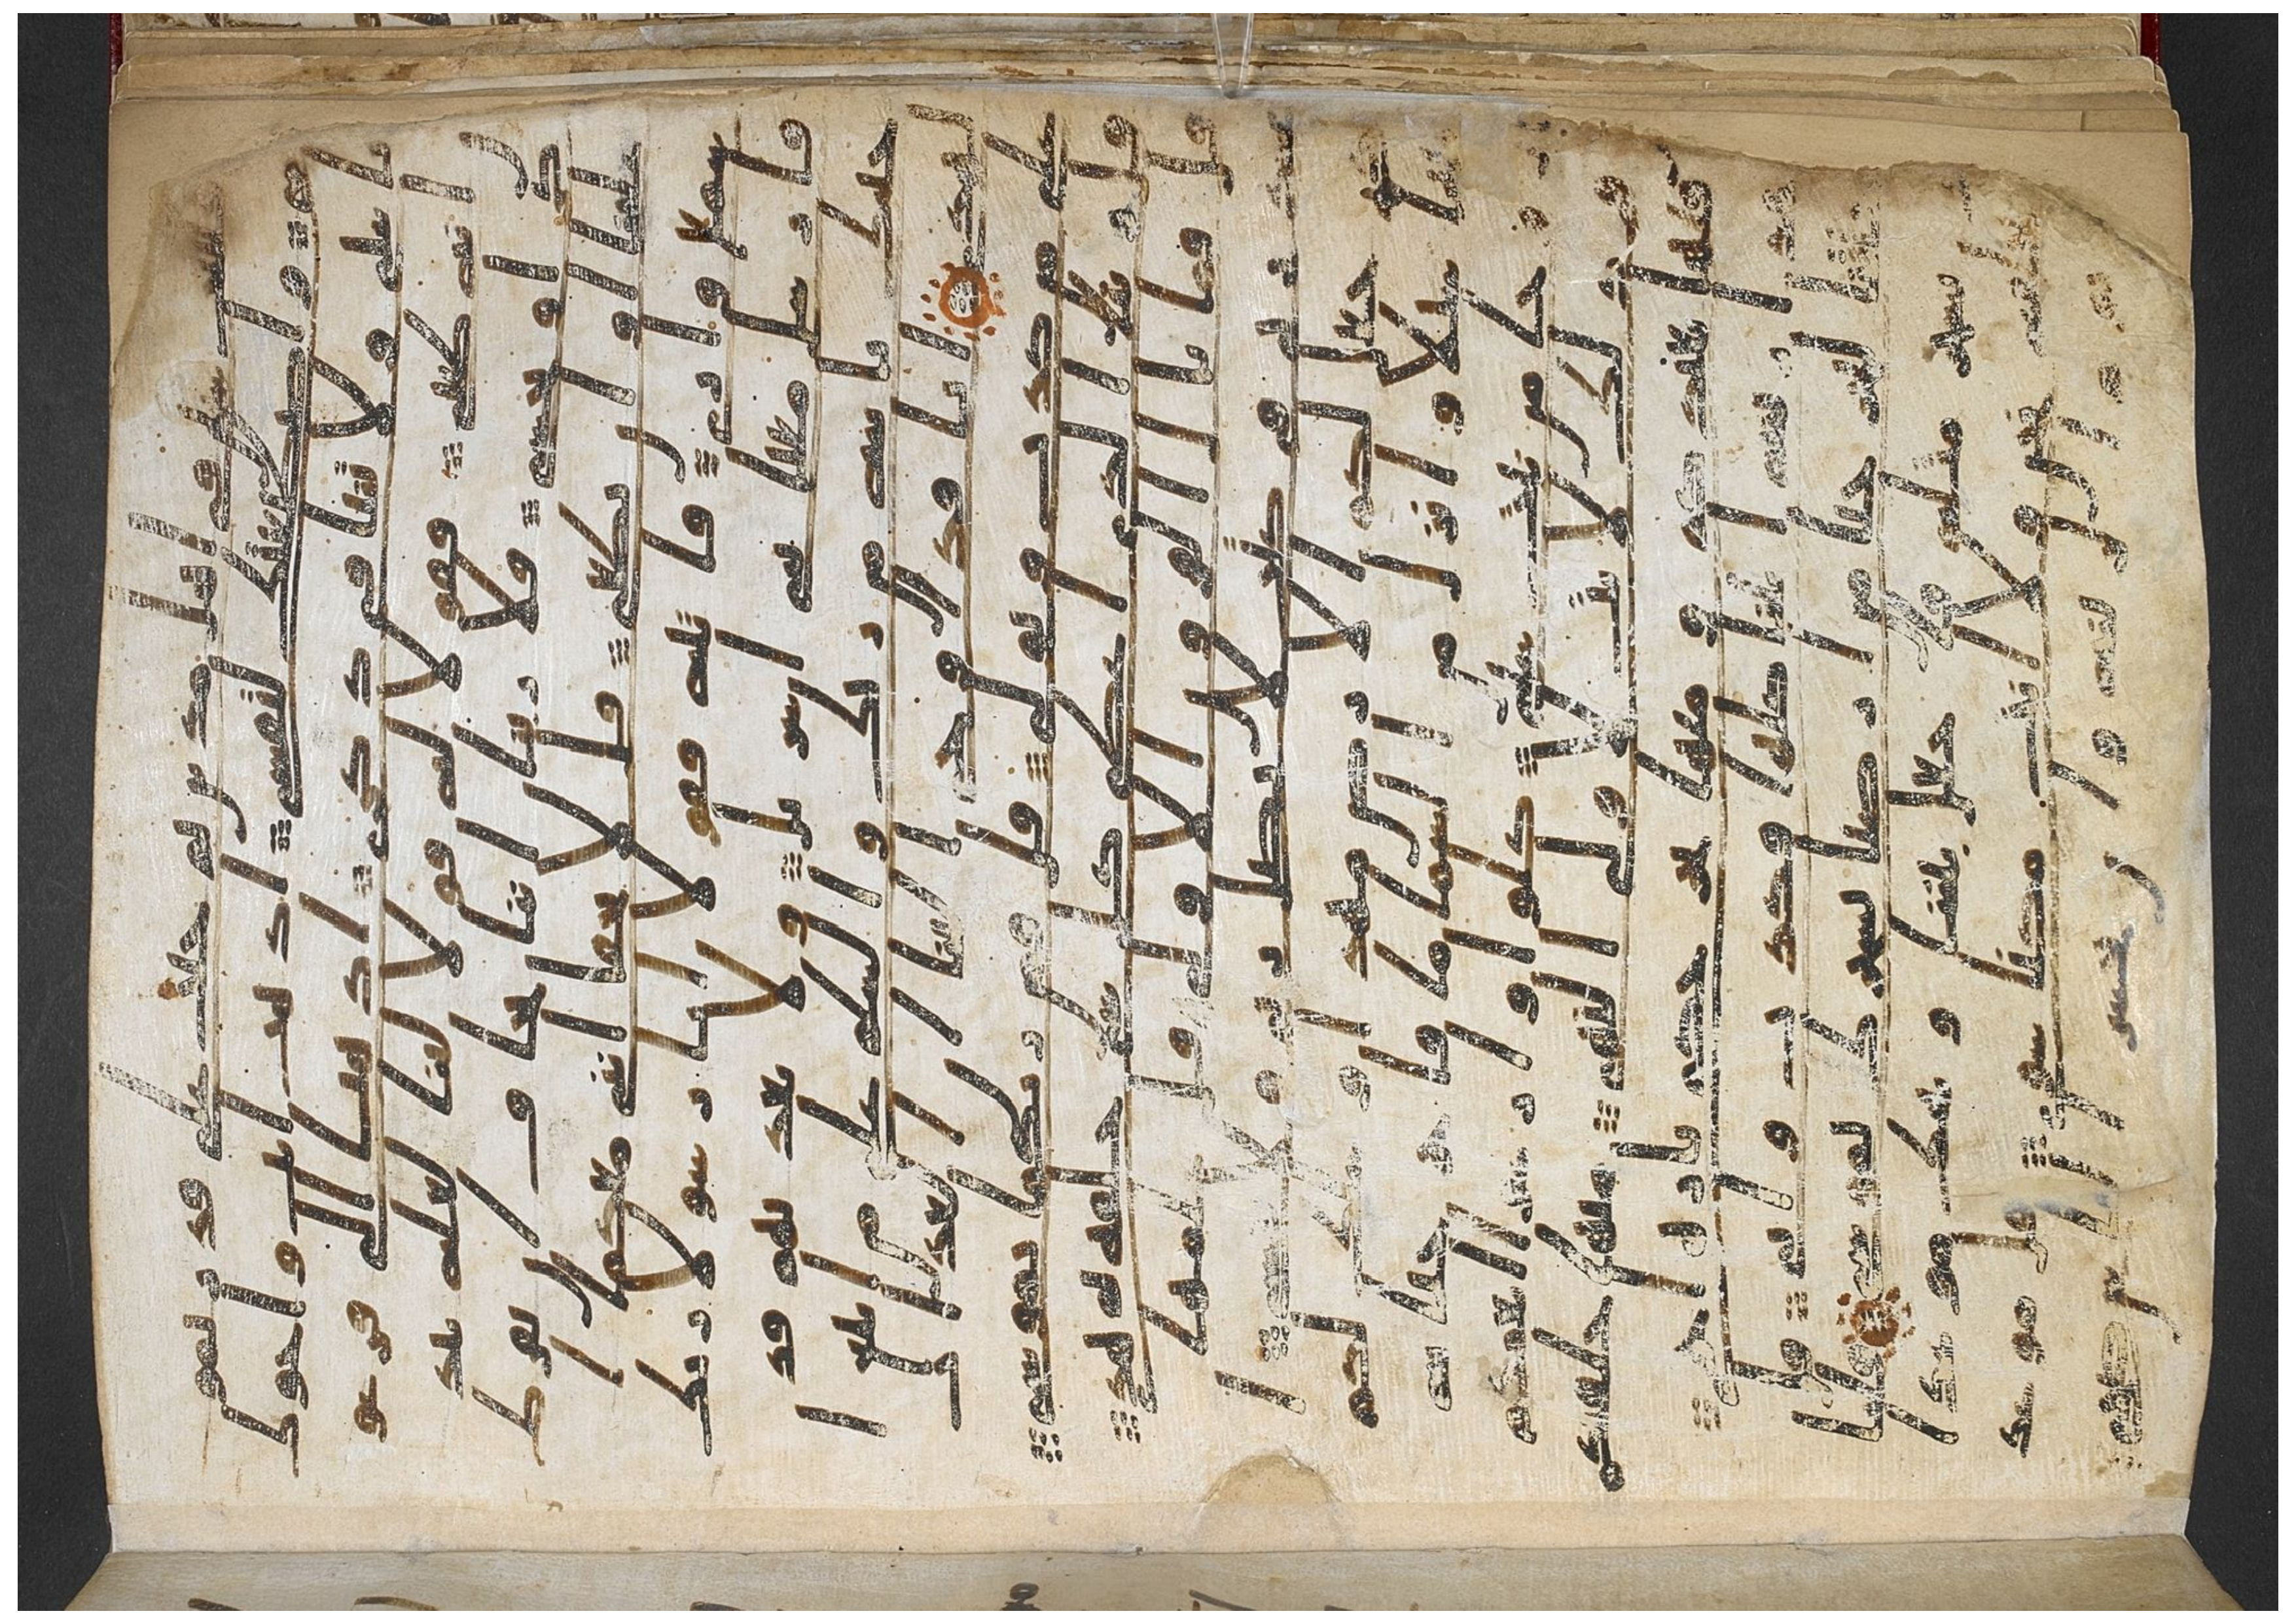 سنين في اهل مدين ثم جئت على قدر يموسى
واصطنعتك لنفسي اذهب انت واخوك
بايتي ولا تنيا في ذكري اذهبا الى فرعون
انه طغى فقولا له قولا لينا لعله يتذ
كر او يخشى قالا ربنا اننا نخاف ان يفرط
علينا او ان يطغى قال لا تخافا انني معكما ا
سمع وارى فاتيه فقولا انا رسولا ربك
فارسل معنا بني اسريل ولا تعذبهم قد
جئنك باية من ربك والسلم على من ا
تبع الهدى انا قد اوحي الينا ان العذاب
على من كذب وتولى قال فمن ربكما يموسى
قال ربنا الذي اعطى كل شي خلقه ثم هدى
قال فما بال القرون الاولى قال علمها
عند ربي في كتب لا يضل ربي ولا ينسى ا
لذي جعل لكم الارض مهدا وسلك لكم
فيها سبلا وانزل من السما ما فاخرجنا به
ازوجا من نبت شتى كلوا وارعوا انعمكم
ان في ذلك لايت لاولي النهى منها خلقنكم
وفيها نعيدكم ومنها نخرجكم تارة اخرى
ولقد ارينه ايتنا كلها فكذب وابى قال
اجئتنا لتخرجنا من ارضنا بسحرك يموسى فلنا
تينك بسحر مثله فاجعل بيننا وبينك موعدا
لا نخلفه نحن ولا انت مكنا سوى قل موعد
كم يوم الزينة وان يحشر الناس ضحى